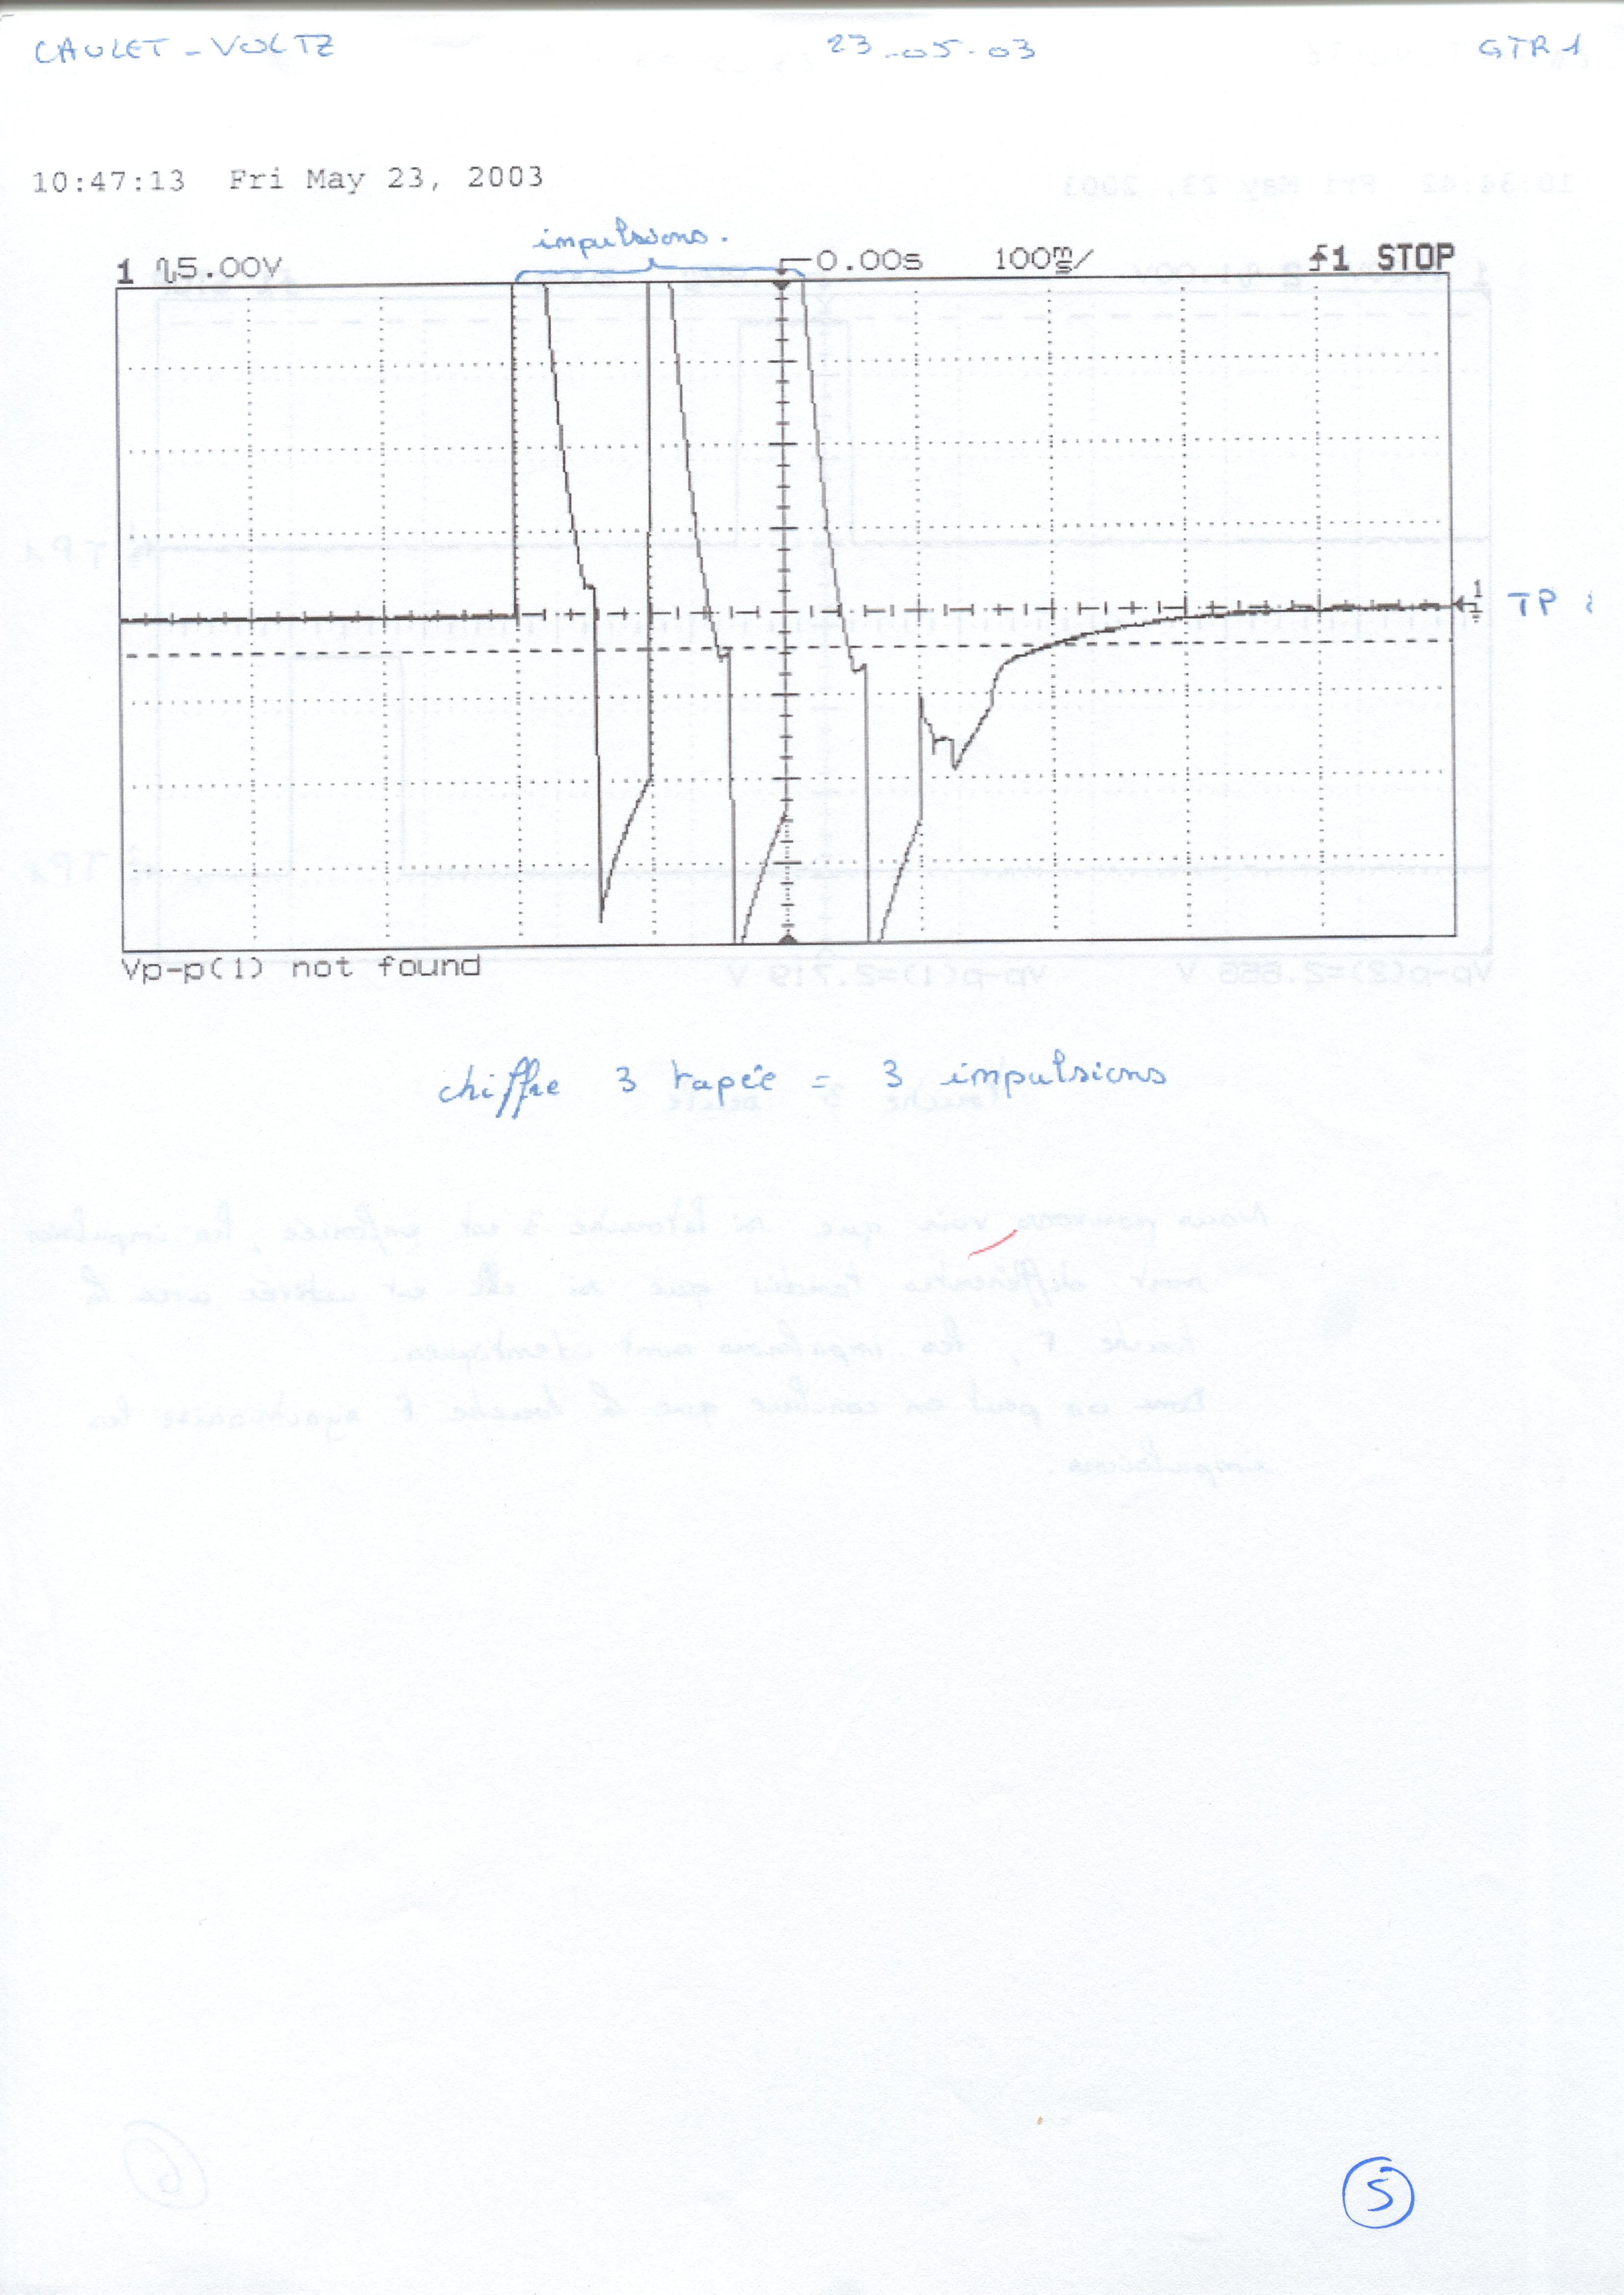 CAULET - VOLTZ 23-05-03 GTR1
10:47:13 Fri May 23, 2003
impulsions.
1 5.00V 0.00s 100ms/ 1 STOP
1
TP
Vp-p(1) not found
chiffre 3 tapée = 3 impulsions
5